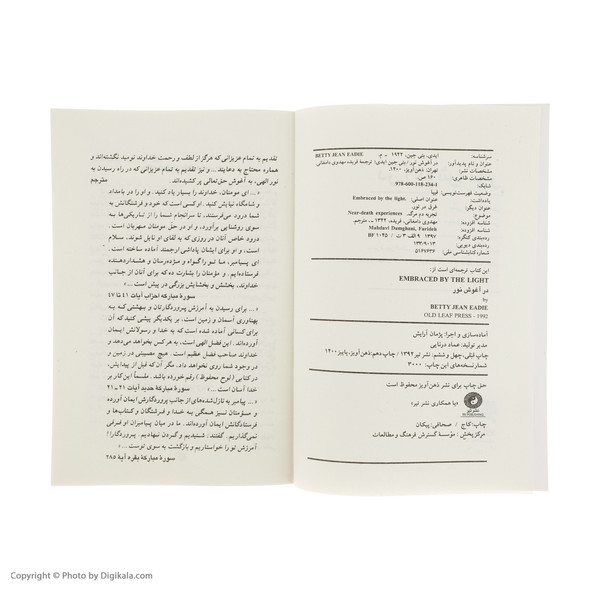 سرشناسه: ایدی، بتی جین، ۱۹۴۲ - م. BETTY JEAN EADIE
عنوان و نام پدیدآور: در آغوش نور/ بتی جین ایدی؛ ترجمهٔ فریده مهدوی دامغانی.
مشخصات نشر: تهران: ذهن‌آویز، ۱۴۰۰.
مشخصات ظاهری: ۱۶۰ ص.
شابک: 978-600-118-234-1
وضعیت فهرست‌نویسی: فیپا
یادداشت: عنوان اصلی: Embraced by the light.
عنوان دیگر: غرق در نور.
موضوع: تجربه دم مرگ. Near-death experiences
شناسه افزوده: مهدوی دامغانی، فریده، ۱۳۴۲ -، مترجم.
شناسه افزوده: Mahdavi Damghani, Farideh
رده‌بندی کنگره: ۱۳۹۷ ۹ الف ۳ ت / BF ۱۰۴۵
رده‌بندی دیویی: ۱۳۳/۹۰۱۳
شماره کتابشناسی ملی: ۵۱۶۷۷۳۶
این کتاب ترجمه‌ای است از:
EMBRACED BY THE LIGHT
در آغوش نور
by
BETTY JEAN EADIE
OLD LEAF PRESS - 1992
آماده‌سازی و اجرا: پژمان آرایش
مدیر تولید: عماد درنایی
چاپ قبلی: چهل و ششم: نشر تیر ۱۳۹۲/ چاپ دهم: ذهن‌آویز، پاییز ۱۴۰۰
شماره نسخه‌های این چاپ: ۳۰۰۰
حق چاپ برای نشر ذهن‌آویز محفوظ است
«با همکاری نشر تیر»
نشر تیر
چاپ: کاج / صحافی: پیکان
مرکز پخش: مؤسسهٔ گسترش فرهنگ و مطالعات
تقدیم به تمام عزیزانی که هرگز از لطف و رحمت خداوند نومید نگشته‌اند و
هماره محتاج به دعایند... و نیز تقدیم به تمام عزیزانی که در راه رسیدن به
نور الهی، به آغوش حق‌تعالی پرکشیده‌اند.
مترجم
«... ای مومنان، خداوند را بسیار یاد کنید. و او را در بامداد
و شامگاه نیایش کنید. اوکسی است که خود و فرشتگانش به
شما درود می‌فرستند، تا سرانجام شما را از تاریکی‌ها به
سوی روشنایی برآورد، و او در حق مومنان مهربان است.
درود خاص آنان در روزی که به لقای او نایل شوند، سلام
است، و او برای ایشان پاداشی ارجمند آماده ساخته است.
ای پسیامبر، ما تو را گواه و مژده‌رسان و هشداردهنده
فرستاده‌ایم. و مؤمنان را بشارت ده که برای آنان از جانب
خداوند، بخشش و بخشایش بزرگی در پیش است...»
سورهٔ مبارکه احزاب آیات ۴۱ تا ۴۷
«... برای رسیدن به آمرزش پروردگارتان و بهشتی که به
پهناوری آسمان و زمین است، بر یکدیگر پیشی کنید که آن
برای کسانی آماده شده است که به خدا و رسولانش ایمان
آورده‌اند. این فضل الهی است، به هرکس بخواهد می‌دهد و
خداوند صاحب فضل عظیم است. هیچ مصیبتی در زمین و
در وجود شما روی نخواهد داد، مگر آن که قبل از پیدایش،
در کتابی [لوح محفوظ] رقم خورده باشد. مسلماً این کار بر
خدا آسان است...» سورهٔ مبارکهٔ حدید آیات ۲۱ - ۲۱
«... پیامبر به نازل‌شده‌های از جانب پروردگارش ایمان آورده
و مؤمنان نسیز همگی به خدا و فرشتگان و کتاب‌ها و
فرستادگانش ایمان آورده‌اند. ما در میان پیامبران او فرقی
نمی‌گذاریم. گفتند: شنیدیم و گردن نهادیم. پروردگارا!
آمرزش تو را خواستاریم و بازگشت به سوی توست...»
سورهٔ مبارکهٔ بقره آیهٔ ۲۸۵
Copyright © Photo by Digikala.com